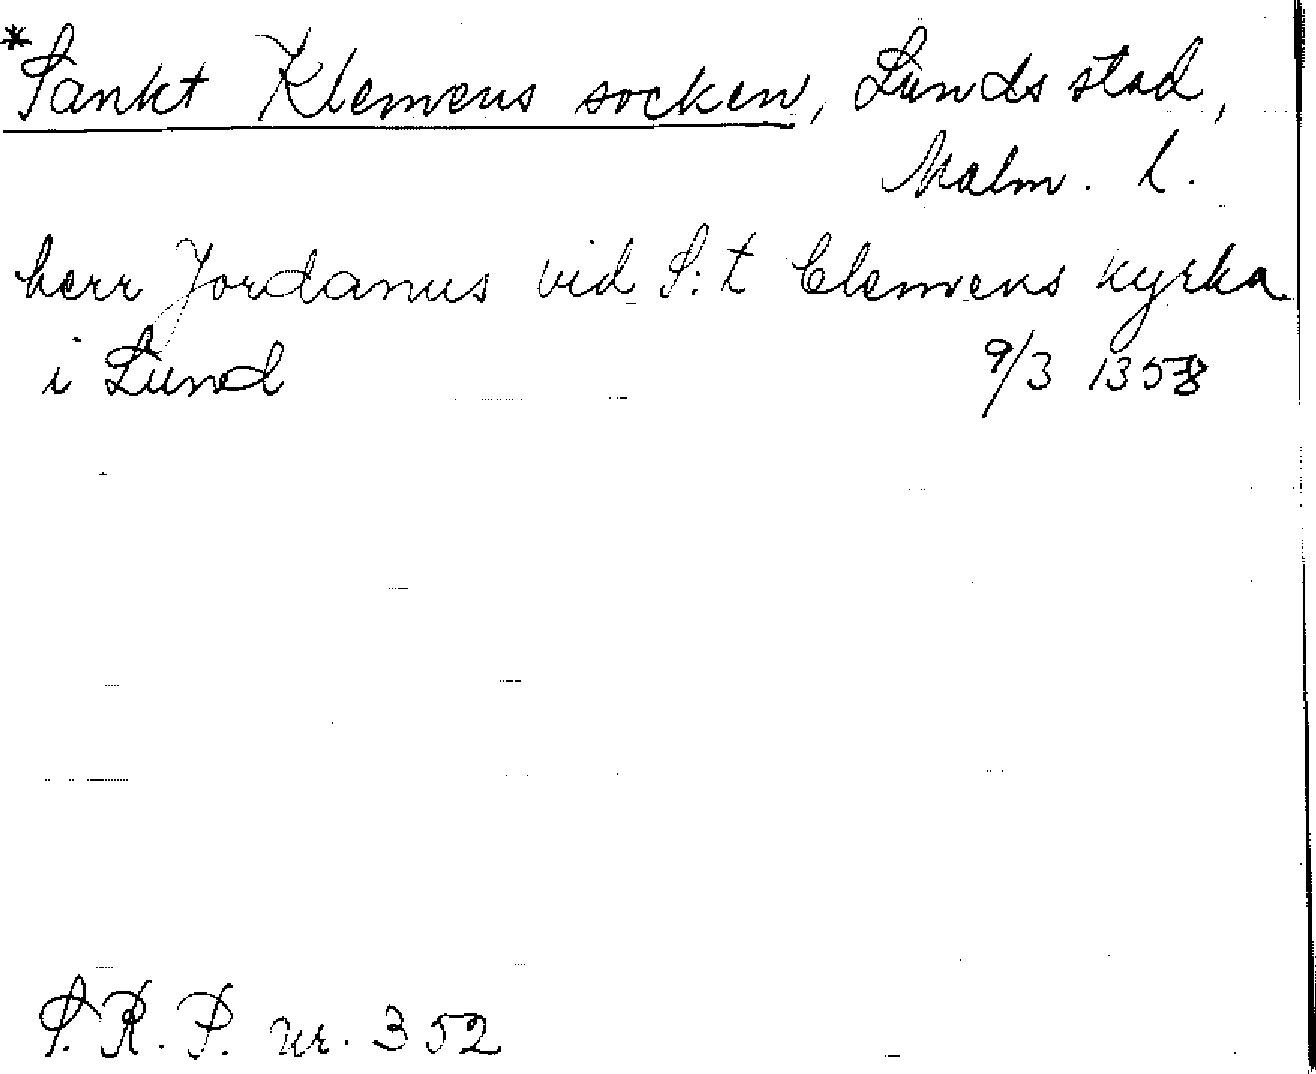 *Sankt Klemens socken, Lunds stad,
Malm. l.
herr Jordanus vid S:t Clemens kyrka
i Lund 9/3 1358
S.R.P. nr. 352